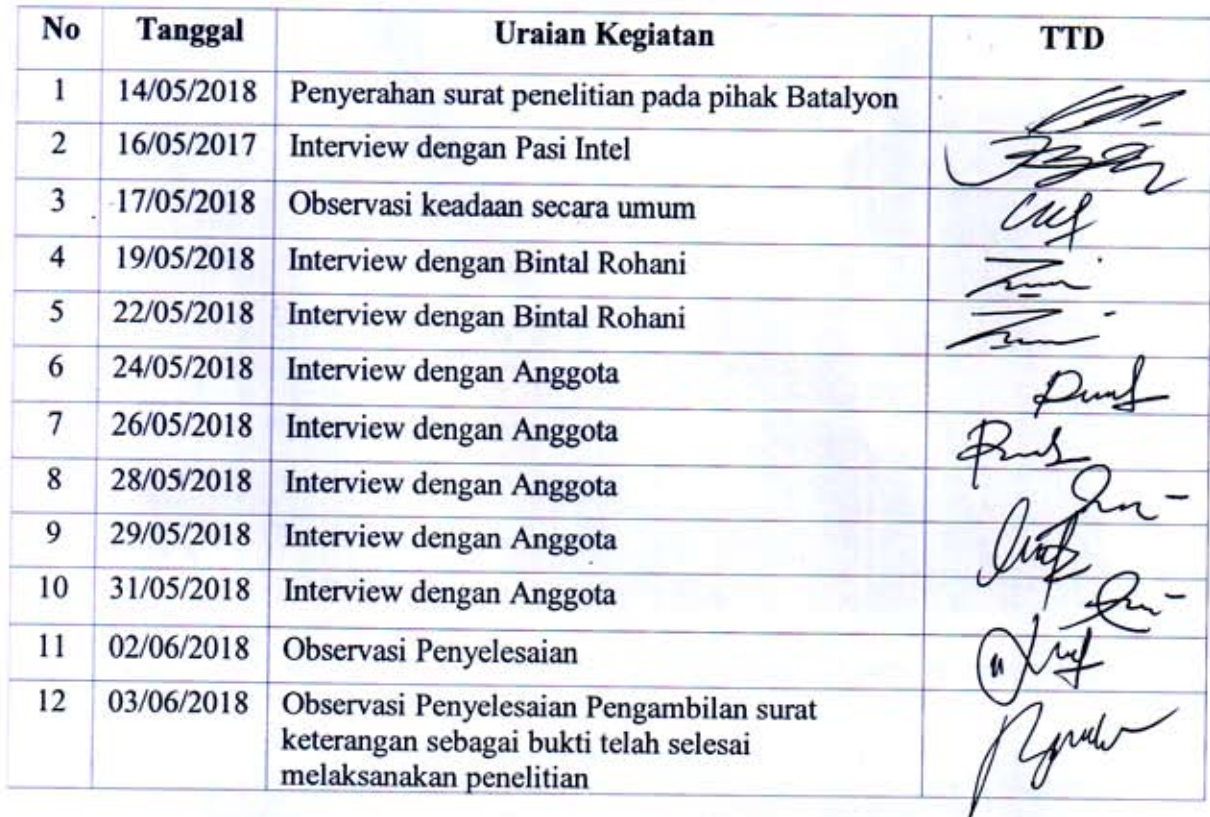 No Tanggal Uraian Kegiatan TTD
1 14/05/2018 Penyerahan surat penelitian pada pihak Batalyon
2 16/05/2017 Interview dengan Pasi Intel
3 17/05/2018 Observasi keadaan secara umum
4 19/05/2018 Interview dengan Bintal Rohani
5 22/05/2018 Interview dengan Bintal Rohani
6 24/05/2018 Interview dengan Anggota
7 26/05/2018 Interview dengan Anggota
8 28/05/2018 Interview dengan Anggota
9 29/05/2018 Interview dengan Anggota
10 31/05/2018 Interview dengan Anggota
11 02/06/2018 Observasi Penyelesaian
12 03/06/2018 Observasi Penyelesaian Pengambilan surat
keterangan sebagai bukti telah selesai
melaksanakan penelitian